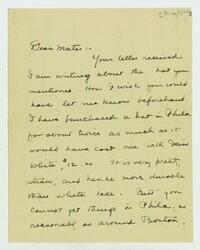 Dear Mater:-
Your letter received
I am writing about the hat you
mentioned. How I wish you could
have let me know beforehand.
I have purchased a hat in Phila
for about twice as much as it
would have cost me with Miss
White, $12.00 It is very pretty,
straw, and hence more durable
than white lace. But you
cannot get things in Phila, as
reasonably as around Boston.